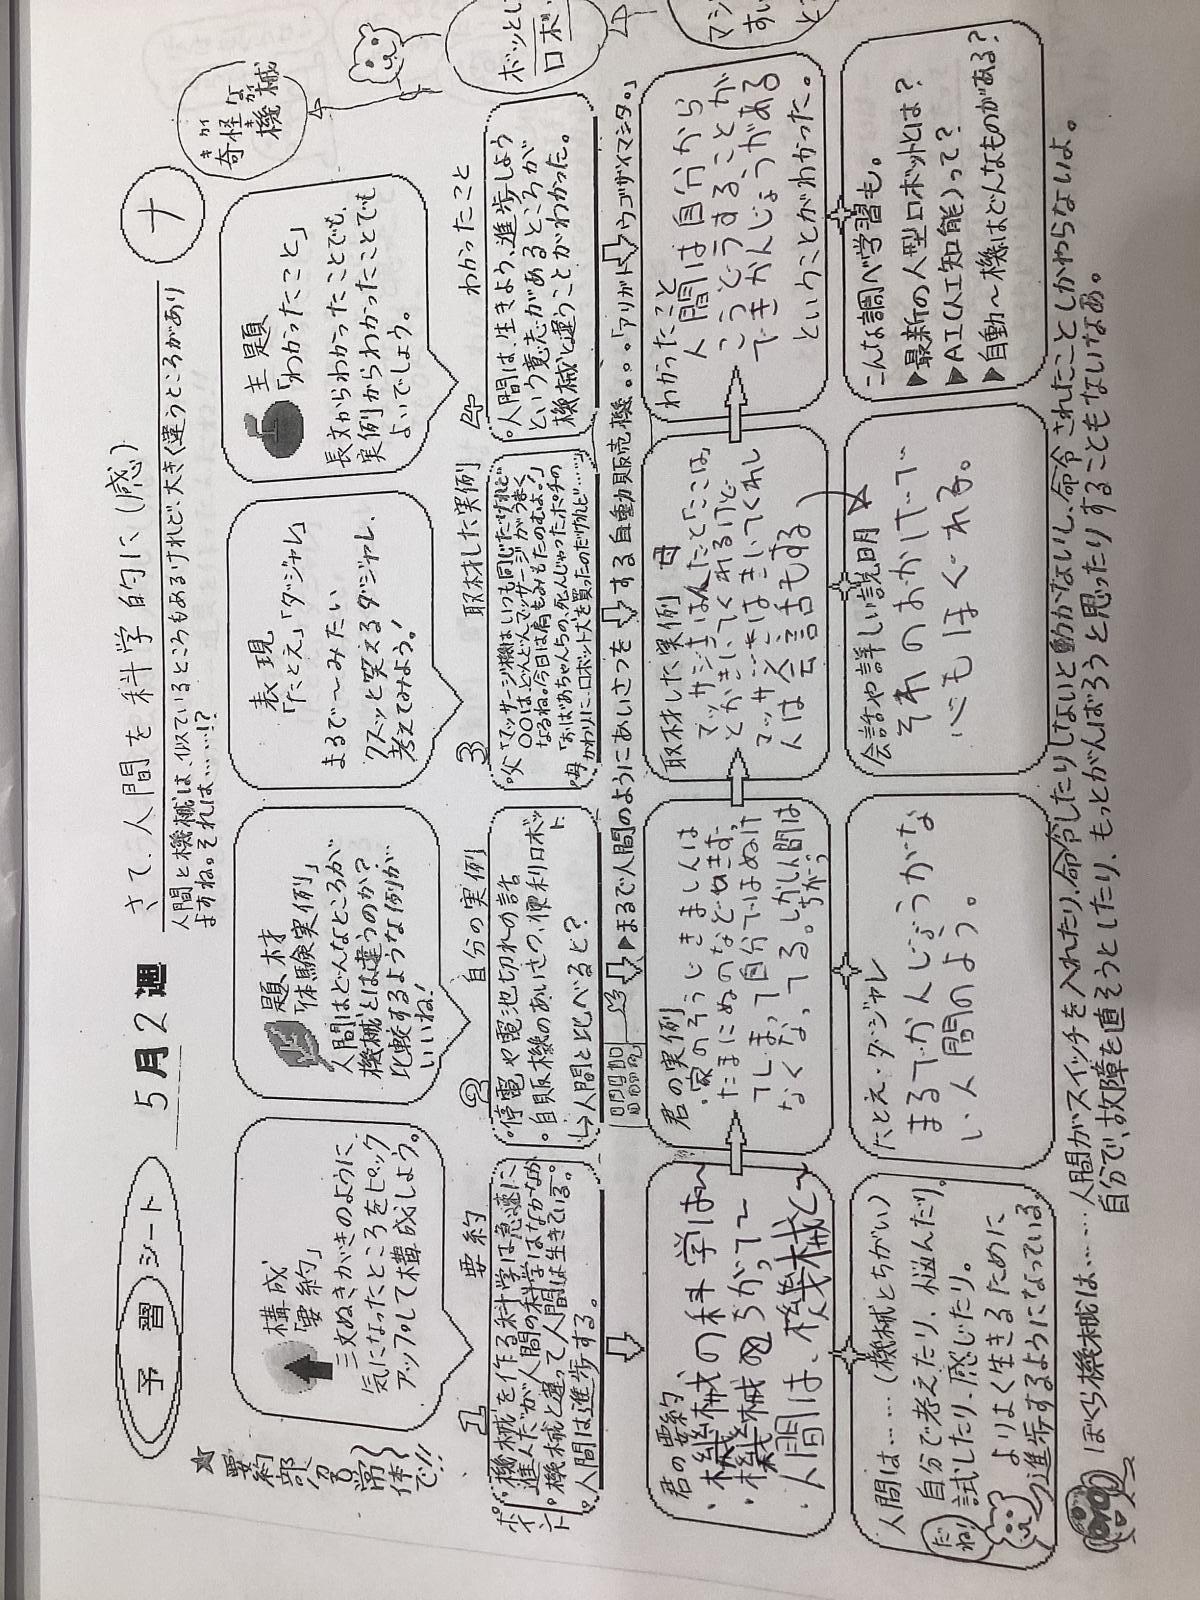 予習シート
5月2週
さて、人間を科学的に(感)
ナ
人間と機械は、似ているところもあるけれど、大きく違うところがあり
ますね。それは……!?
奇怪な機械
きかい
きかい
ボッとし
ロボ
マシ
すい
と
★要約部分は常体で!!
構成
「要約」
三文ぬきがきのように
気になったところをピック
アップして構成しよう。
題材
「体験実例」
人間はどんなところが
機械とは違うのか?
比較するような例が
いいね!
表現
「たとえ」「ダジャレ」
まるで〜みたい
クスッと笑えるダジャレ、
考えてみよう!
主題
「わかったこと」
長文からわかったことでも、
実例からわかったことでも
よいでしょう。
1 要約
2 自分の実例
3 取材した実例
4 わかったこと
ポイント
・機械を作る科学は急速に
進んだが人間の科学はなかなか。
・機械と違って人間は生きている。
・人間は進歩する。
・停電や電池切れの話
・自販機のあいさつ、便利ロボット
↳人間と比べると?
・父「マッサージ機はいつも同じだけれど
〇〇はどんどんマッサージがうまく
なるね。今日は肩もみもたのむよ。」
・母「おばあちゃんちの、死んじゃったポチの
かわりに、ロボット犬を買ったのだけれど……」
・人間は、生きよう、進歩しよう
という意志があるところが
機械と違うことがわかった。
▶まるで人間のようにあいさつをする自動販売機。。。「アリガトウゴザイマシタ。」
君の要約
・機械の科学は〜
・機械とちがって〜
・人間は、機械と〜
君の実例
・家のそうじきましんは
たまにぬのなどせきず
てしまって自分ではぬけ
なくなってる。しかし人間は
ちがう
取材した実例 母
マッサジきは人だと「ここは」
とかきいてくれるけど
マッサジきはきいてくれし
人は会話もする
わかったこと
人間は自分から
こうどうすることが
できかんじょうがある
ということがわかった。
人間は……(機械とちがい)
自分で考えたり、悩んだり。
試したり、感じたり。
よりよく生きるために
進歩するようになっている
だねり
たとえ・ダジャレ
まるでかんじょうがな
い人間のよう。
会話や詳しい説明
それのおかげで
心もほぐれる。
こんな調べ学習も。
▶最新の人型ロボットとは?
▶AI(人工知能)って?
▶自動〜機はどんなものがある?
ぼくら機械は……人間がスイッチを入れたり、命令したりしないと動かないし、命令されたことしかわからないよ。
自分で、故障を直そうとしたり、もっとがんばろうと思ったりすることもないなあ。